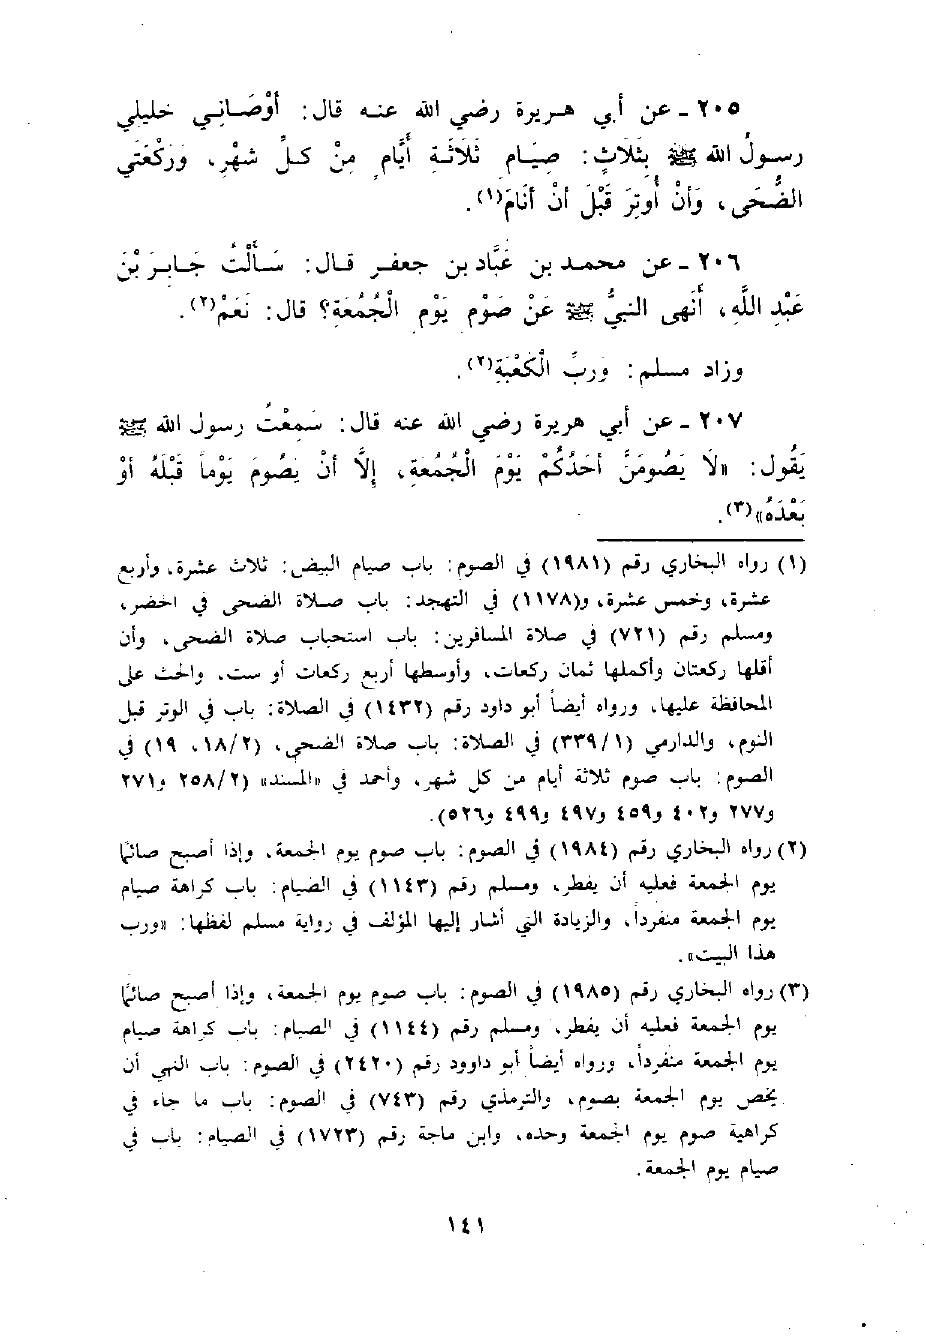 ٢٠٥ - عن أبي هـريرة رضي الله عنـه قال: أوْصَـانِـي خليلي
رسـولُ الله ﷺ بِثَلَاثٍ: صِيَـامِ ثَلَاثَـةِ أَيَّامٍ مِنْ كـلِّ شهْرٍ، وَرَكْعَتَي
الضُّحَى، وَأنْ أُوتِرَ قَبْلَ أنْ أنَامَ(١).
٢٠٦ - عن محمـد بن عَبَّاد بن جعفـر قـال: سَـأَلْتُ جَـابِـرَ بْنَ
عَبْدِ اللَّهِ، أَنَهى النبيُّ ﷺ عَنْ صَوْمِ يَوْمِ الْجُمُعَةِ؟ قال: نَعَمْ(٢).
وزاد مسلم: وَرَبِّ الْكَعْبَةِ(٢).
٢٠٧ - عن أبي هريرة رضي الله عنه قال: سَمِعْتُ رسول الله ﷺ
يَقُول: «لَا يَصُومَنَّ أحَدُكُمْ يَوْمَ الْجُمُعَةِ، إِلَّا أنْ يَصُومَ يَوْماً قَبْلَهُ أوْ
بَعْدَهُ»(٣).
(١) رواه البخاري رقم (١٩٨١) في الصوم: باب صيام البيض: ثلاث عشرة، وأربع
عشرة، وخمس عشرة، و(١١٧٨) في التهجد: باب صلاة الضحى في الحضر،
ومسلم رقم (٧٢١) في صلاة المسافرين: باب استحباب صلاة الضحى، وأن
أقلها ركعتان وأكملها ثمان ركعات، وأوسطها أربع ركعات أو ست، والحث على
المحافظة عليها، ورواه أيضاً أبو داود رقم (١٤٣٢) في الصلاة: باب في الوتر قبل
النوم، والدارمي (٣٣٩/١) في الصلاة: باب صلاة الضحى، (١٨/٢، ١٩) في
الصوم: باب صوم ثلاثة أيام من كل شهر، وأحمد في «المسند» (٢٥٨/٢ و٢٧١
و٢٧٧ و٤٠٢ و٤٥٩ و٤٩٧ و٤٩٩ و٥٢٦).
(٢) رواه البخاري رقم (١٩٨٤) في الصوم: باب صوم يوم الجمعة، وإذا أصبح صائماً
يوم الجمعة فعليه أن يفطر، ومسلم رقم (١١٤٣) في الصيام: باب كراهة صيام
يوم الجمعة منفرداً، والزيادة التي أشار إليها المؤلف في رواية مسلم لفظها: «ورب
هذا البيت».
(٣) رواه البخاري رقم (١٩٨٥) في الصوم: باب صوم يوم الجمعة، وإذا أصبح صائماً
يوم الجمعة فعليه أن يفطر، ومسلم رقم (١١٤٤) في الصيام: باب كراهة صيام
يوم الجمعة منفرداً، ورواه أيضاً أبو داوود رقم (٢٤٢٠) في الصوم: باب النهي أن
يخص يوم الجمعة بصوم، والترمذي رقم (٧٤٣) في الصوم: باب ما جاء في
كراهية صوم يوم الجمعة وحده، وابن ماجة رقم (١٧٢٣) في الصيام: باب في
صيام يوم الجمعة.
١٤١